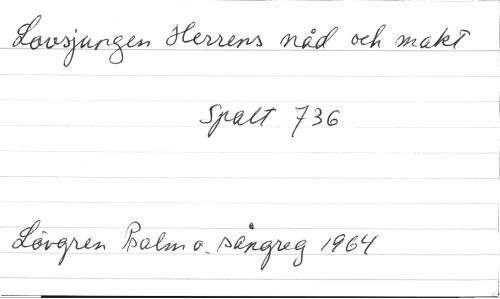 Lovsjungen Herrens nåd och makt
Spalt 736
Lövgren Psalm o. sångreg 1964